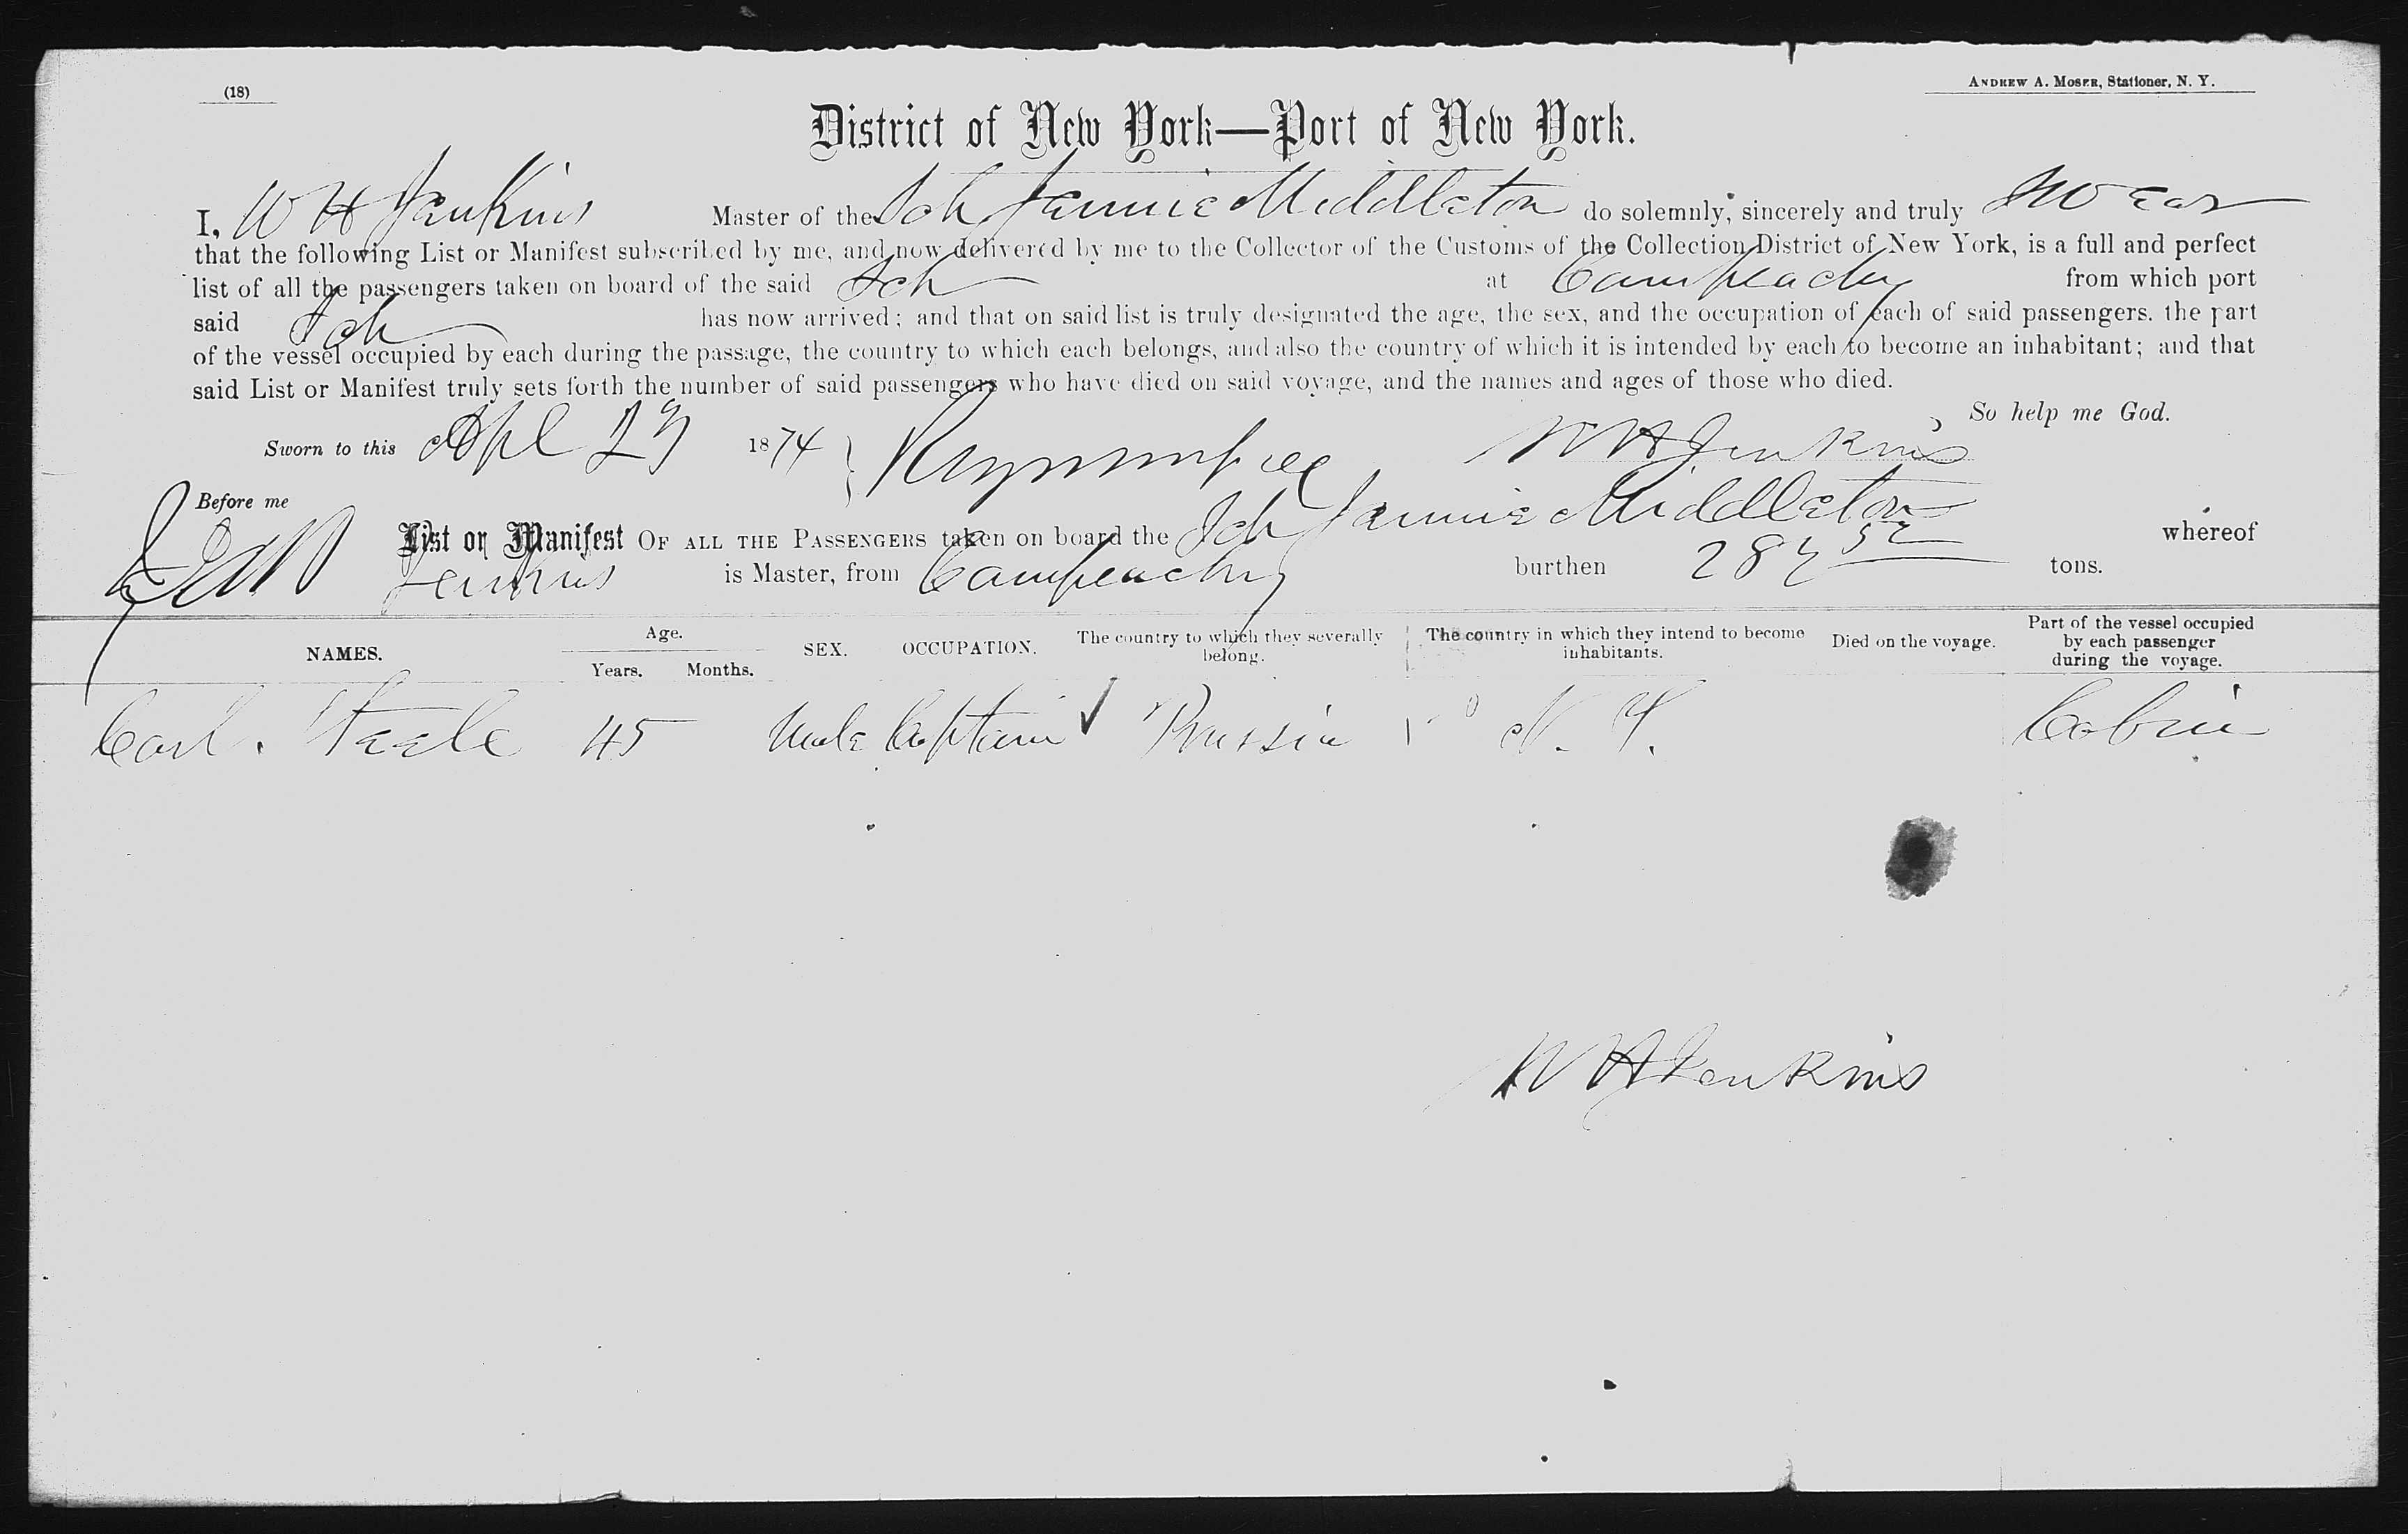 (18)
ANDREW A. MOSER, Stationer, N. Y.
District of New York—Port of New York.
I, W H Jenkins Master of the Sch Jannie Middleton do solemnly, sincerely and truly swear
that the following List or Manifest subscribed by me, and now delivered by me to the Collector of the Customs of the Collection District of New York, is a full and perfect
list of all the passengers taken on board of the said Sch at Campeachy from which port
said Sch has now arrived; and that on said list is truly designated the age, the sex, and the occupation of each of said passengers. the part
of the vessel occupied by each during the passage, the country to which each belongs, and also the country of which it is intended by each to become an inhabitant; and that
said List or Manifest truly sets forth the number of said passengers who have died on said voyage, and the names and ages of those who died.
So help me God.
Sworn to this Apl 1874 W H Jenkins
Before me
List or Manifest OF ALL THE PASSENGERS taken on board the Sch Jannie Middleton whereof
Jenkins is Master, from Campeachy burthen tons.
NAMES. Age. Years. Months. SEX. OCCUPATION. The country to which they severally belong. The country in which they intend to become inhabitants. Died on the voyage. Part of the vessel occupied by each passenger during the voyage.
Carl. Steele 45 Male Captain ✓ Prussia N. Y. Cabin
W H Jenkins